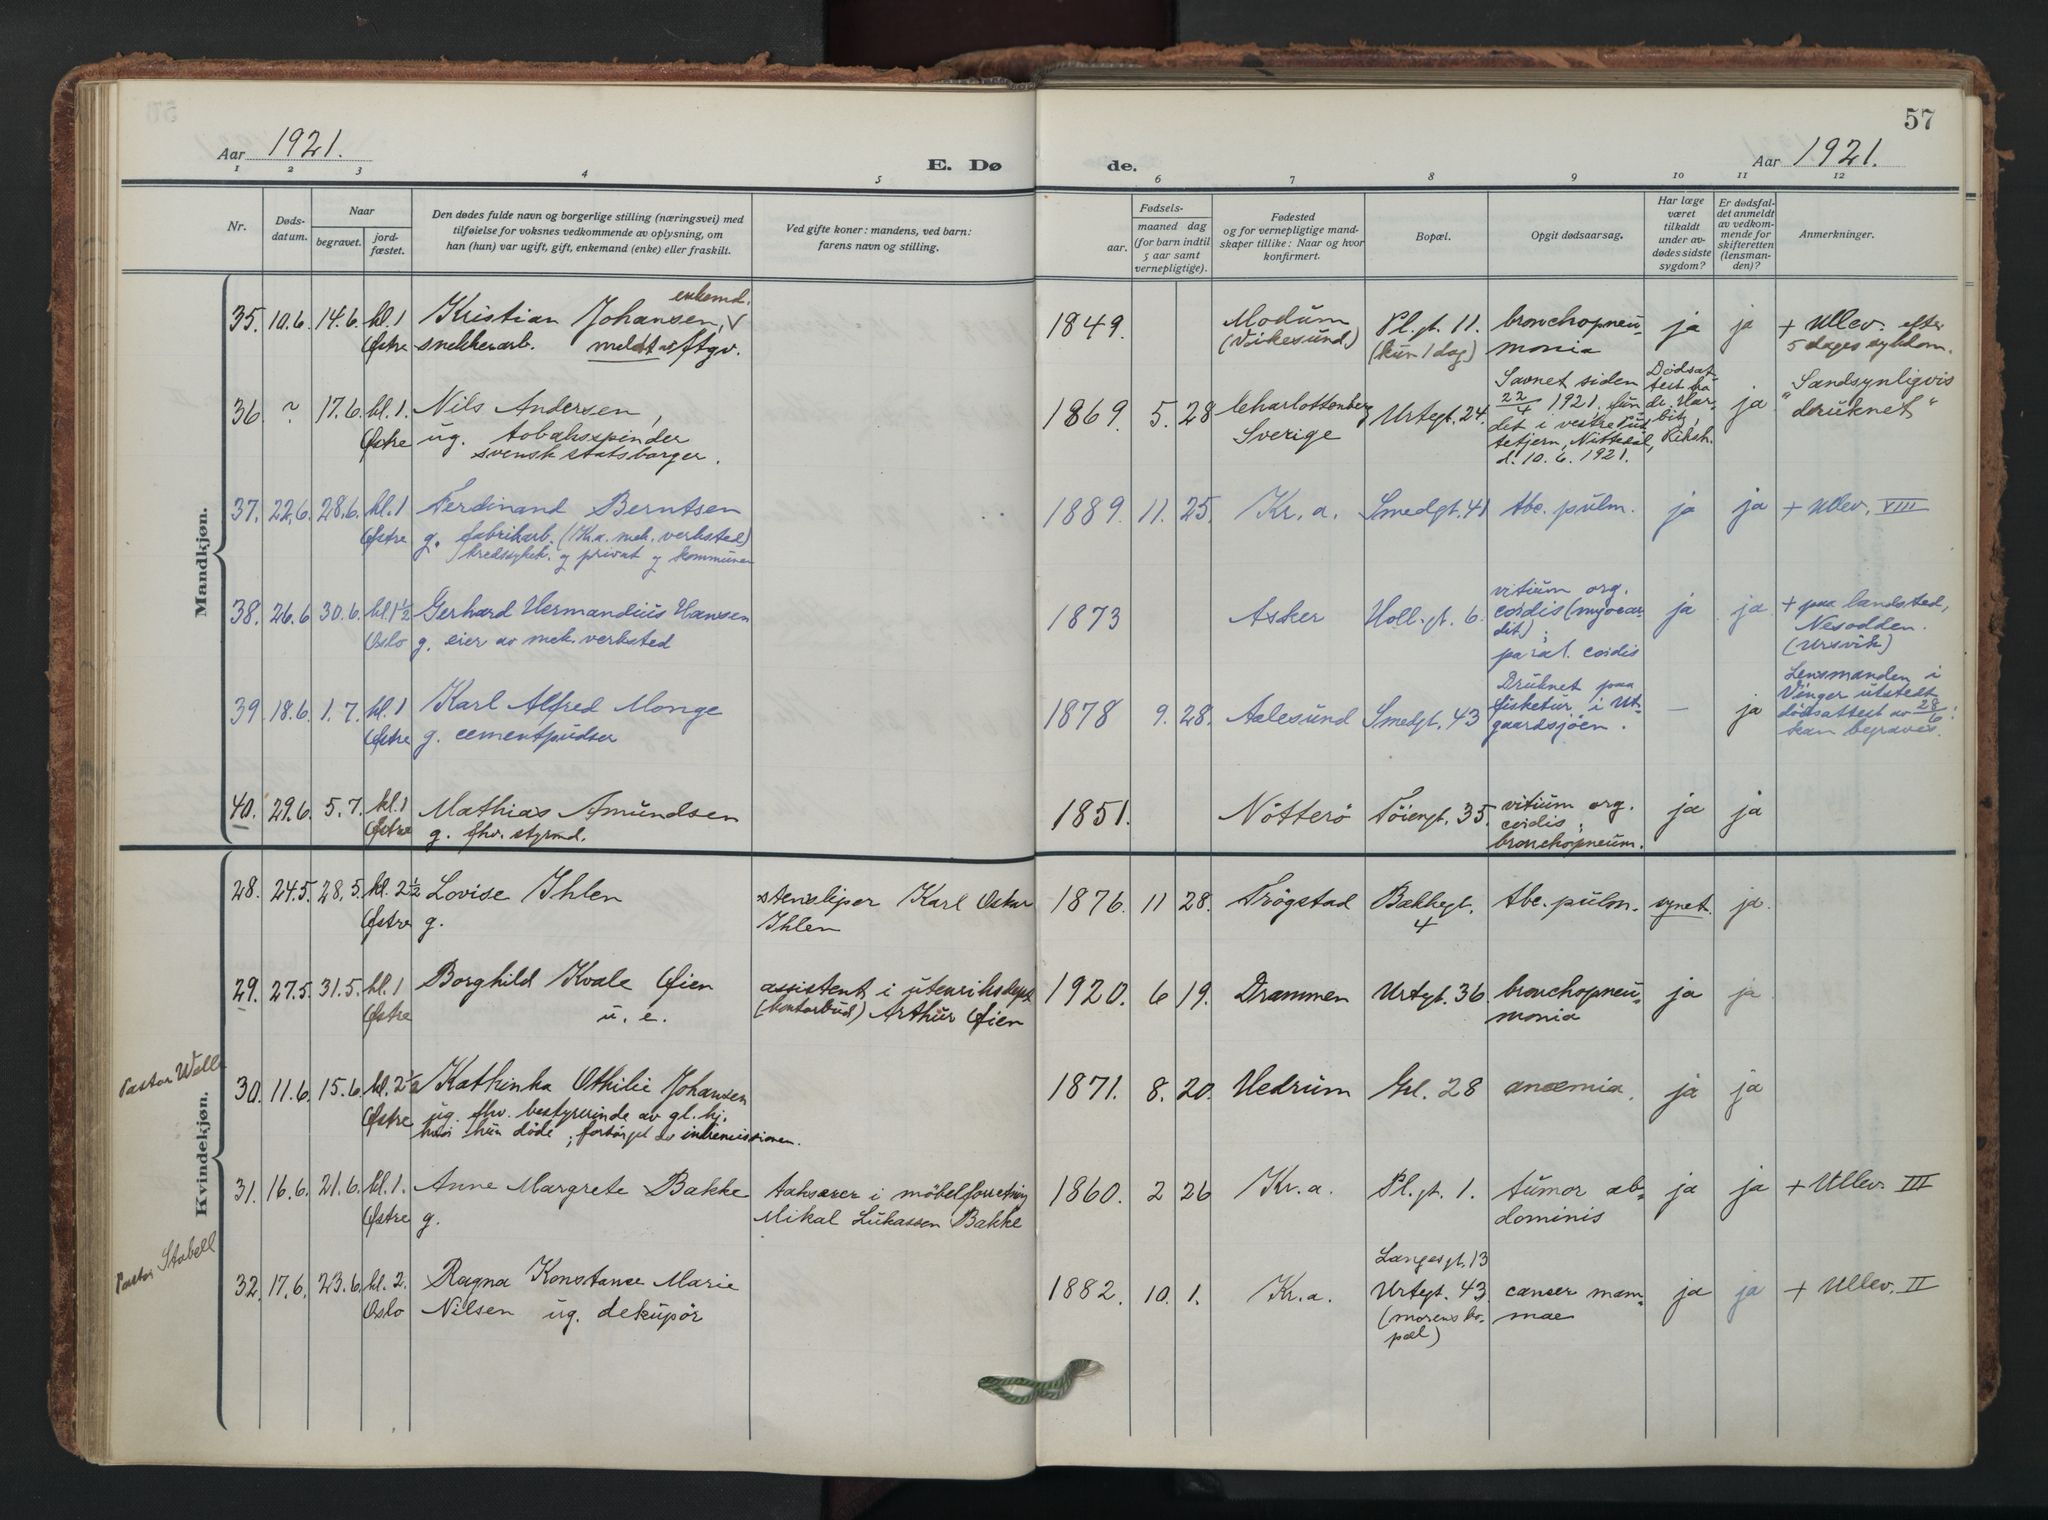 57
Aar 1921.
E. Dø de.
Aar 1921.
1 2 3 4 5 6 7 8 9 10 11 12
Nr.
Døds-
datum.
Naar
begravet.
jord-
fæstet.
Den dødes fulde navn og borgerlige stilling (næringsvei) med
tilføielse for voksnes vedkommende av oplysning, om
han (hun) var ugift, gift, enkemand (enke) eller fraskilt.
Ved gifte koner: mandens, ved barn:
farens navn og stilling.
Fødsels-
aar.
maaned dag
(for barn indtil
5 aar samt
vernepligtige).
Fødested
og for vernepligtige mand-
skaper tillike: Naar og hvor
konfirmert.
Bopæl.
Opgit dødsaarsag.
Har læge
været
tilkaldt
under av-
dødes sidste
sygdom?
Er dødsfal-
det anmeldt
av vedkom-
mende for
skifteretten
(lensman-
den)?
Anmerkninger.
Mandkjøn.
enkemd.
35. 10.6. 14.6. kl. 1 Kristian Johansen, 1849. Modum Pl. gt. 11. bronchopneu- ja ja + Ullev. efter
Østre snekkerarb. meldt av ftgv. (Vikesund) (kun 1 dag) monia 5 dages sykdom.
36 ? 17.6. kl. 1. Nils Andersen, 1869. 5. 28 Charlottenberg Urtegt. 24. Savnet siden ja "Sandsynligvis
Østre ug. tobaksspinder Sverige 22/4 1921, fun druknet"
svensk statsborger. det i vestre Put
tetjern, Nittedal,
d. 10.6. 1921.
Dødsat-
test fra
dr. Har-
bitz,
Riksh.
37. 22.6. 28.6. kl. 1 Ferdinand Berntsen 1889. 11. 25. Kr.a. Smedgt. 41 tbc. pulm. ja ja + Ullev. VIII
Østre g. fabrikarb. (Kr.a. mek. verksted)
kredssykek. og privat og kommunen
38. 26.6 30.6. kl. 1 1/2 Gerhard Hermandius Hansen 1873 Asker Holl. gt. 6. vitium org. ja ja + paa landsted,
Oslo g. eier av mek. verksted cordis (myocar- Nesodden.
dit); (Ursvik)
paral. cordis
39. 18.6. 1.7. kl. 1 Karl Alfred Monge 1878 9. 28. Aalesund Smedgt. 43 Druknet paa — ja Lensmanden i
Østre g. cementpudser fisketur i Ut- Vinger utstedt
gaardsjøen. dødsattest av 28/6:
kan begraves.
40. 29.6. 5.7. kl. 1 Mathias Amundsen 1851. Nötterö Töiengt. 35. vitium org. ja ja
Østre g. fhv. styrmd. cordis;
bronchopneum.
Kvindekjøn.
28. 24.5. 28.5. kl. 2 1/2 Lovise Ihlen stensliper Karl Oskar 1876. 11 28. Trögstad Bakkegt. tbc. pulm. synet. ja.
Østre g. Ihlen 4
29. 27.5. 31.5. kl. 1 Borghild Kvale Øien assistent i utenriksdept 1920. 6 19. Drammen Urtegt. 36. bronchopneu- ja ja
Østre u. e. (kontorbud) Arthur Øien monia
Pastor
30. 11.6. 15.6. kl. 2 1/2 Kathinka Othilie Johansen 1871. 8. 20. Hedrum Grl. 28 anæmia. ja ja
Østre ug. fhv. bestyrerinde av gl. hj.
hvor hun döde; forsörget av indremissionen.
31. 16.6. 21.6. kl. 1. Anne Margrete Bakke taksører i möbelforretning 1860. 2 26 Kr.a. Pl. gt. 1. tumor ab- ja ja + Ullev. III
Østre g. Mikal Lukassen Bakke dominis
Pastor Stabell
Langesgt. 13
32. 17.6. 23.6. kl. 2. Ragna Konstance Marie 1882. 10. 1. Kr.a. Urtegt. 43 canser mam- ja ja + Ullev. II
Oslo Nilsen ug. dekupör (morens bo- mae
pæl)